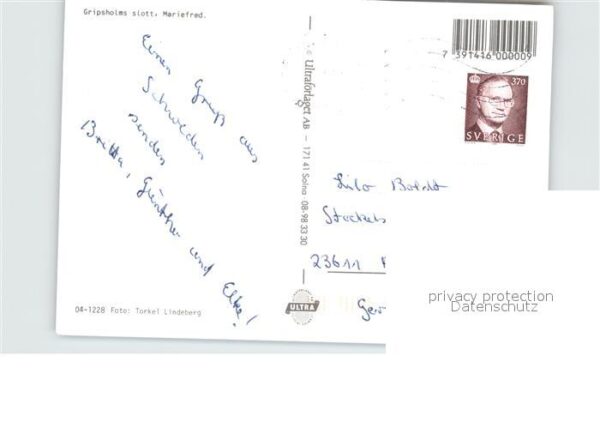 Gripsholms slott, Mariefred.
Einen Gruß aus
Schweden
senden
Britta, Günther und Elke!
04-1228 Foto: Torkel Lindeberg
Ultraförlaget AB — 171 41 Solna 08-98 33 30
ULTRA
7 391416 000009
370
SVERIGE
Boldt
23611
privacy protection
Datenschutz